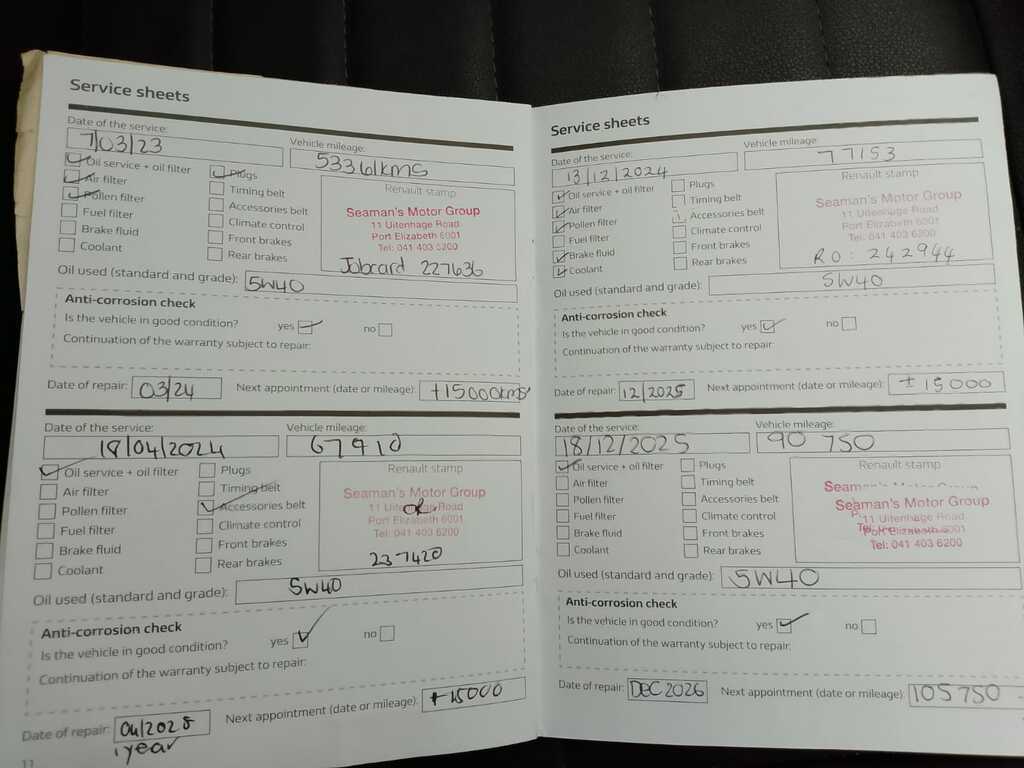 Service sheets
Date of the service:
7/03/23
Vehicle mileage:
53361kms
Oil service + oil filter
Air filter
Pollen filter
Fuel filter
Brake fluid
Coolant
Plugs
Timing belt
Accessories belt
Climate control
Front brakes
Rear brakes
Renault stamp
Seaman's Motor Group
11 Uitenhage Road
Port Elizabeth 6001
Tel: 041 403 6200
Jobcard 227636
Oil used (standard and grade): 5W40
Anti-corrosion check
Is the vehicle in good condition? yes no
Continuation of the warranty subject to repair:
Date of repair: 03/24 Next appointment (date or mileage): +15000kms
Date of the service:
18/04/2024
Vehicle mileage:
67910
Oil service + oil filter
Air filter
Pollen filter
Fuel filter
Brake fluid
Coolant
Plugs
Timing belt
Accessories belt
Climate control
Front brakes
Rear brakes
Renault stamp
Seaman's Motor Group
11 Uitenhage Road
Port Elizabeth 6001
Tel: 041 403 6200
237420
Oil used (standard and grade): 5W40
Anti-corrosion check
Is the vehicle in good condition? yes no
Continuation of the warranty subject to repair:
Date of repair: 04/2025 Next appointment (date or mileage): +15000
1 year
11
Service sheets
Date of the service:
13/12/2024
Vehicle mileage:
77153
Oil service + oil filter
Air filter
Pollen filter
Fuel filter
Brake fluid
Coolant
Plugs
Timing belt
Accessories belt
Climate control
Front brakes
Rear brakes
Renault stamp
Seaman's Motor Group
11 Uitenhage Road
Port Elizabeth 6001
Tel: 041 403 6200
RO: 242944
Oil used (standard and grade): 5W40
Anti-corrosion check
Is the vehicle in good condition? yes no
Continuation of the warranty subject to repair:
Date of repair: 12/2025 Next appointment (date or mileage): ±15000
Date of the service:
18/12/2025
Vehicle mileage:
90 750
Oil service + oil filter
Air filter
Pollen filter
Fuel filter
Brake fluid
Coolant
Plugs
Timing belt
Accessories belt
Climate control
Front brakes
Rear brakes
Renault stamp
Seaman's Motor Group
11 Uitenhage Road
Port Elizabeth 6001
Tel: 041 403 6200
Oil used (standard and grade): 5W40
Anti-corrosion check
Is the vehicle in good condition? yes no
Continuation of the warranty subject to repair:
Date of repair: DEC 2026 Next appointment (date or mileage): 105750